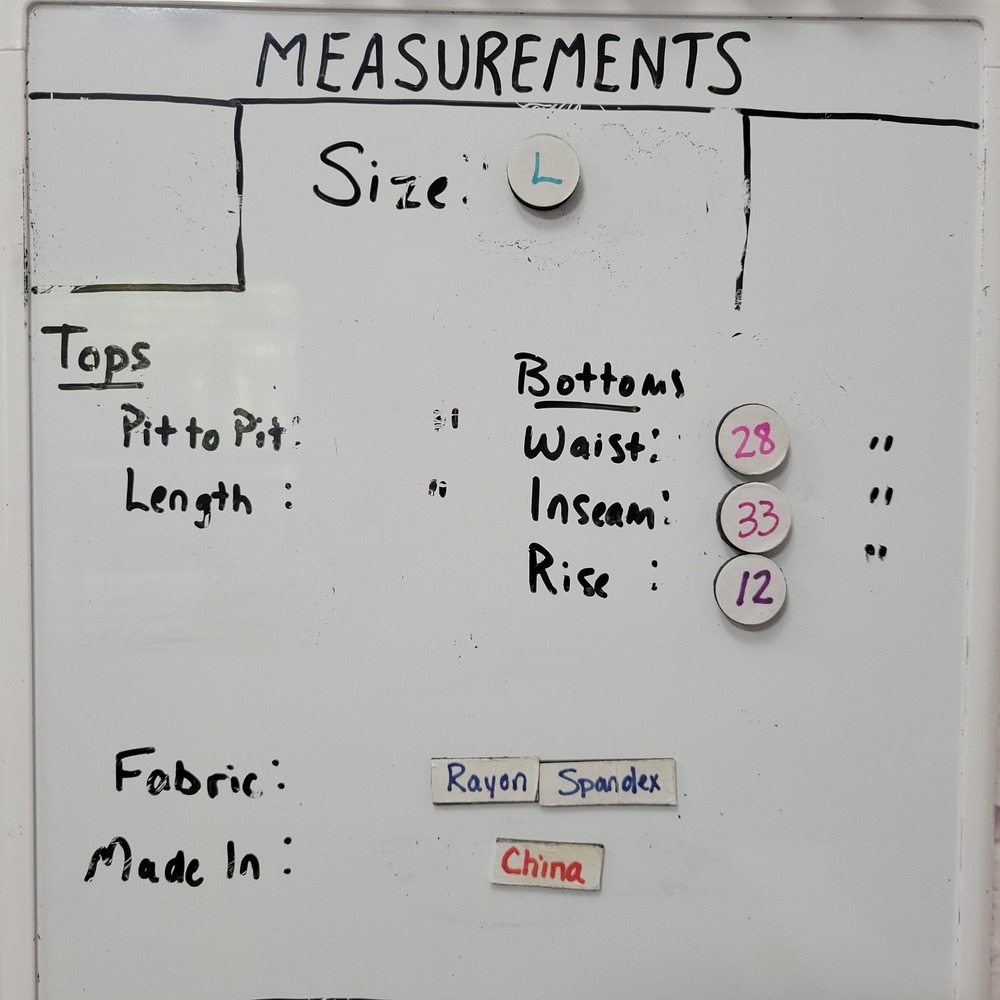 MEASUREMENTS
Size: L
Tops
Pit to Pit: "
Length : "
Bottoms
Waist: 28 "
Inseam: 33 "
Rise : 12 "
Fabric: Rayon Spandex
Made In: China